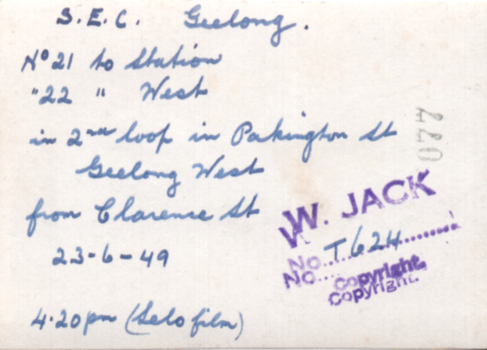 S.E.C. Geelong.
No 21 to Station
" 22 " West
in 2nd loop in Pakington St
Geelong West
from Clarence St
23-6-49
4.20pm (Selo film)
W. JACK
No. T624
No.
Copyright.
Copyright.
077